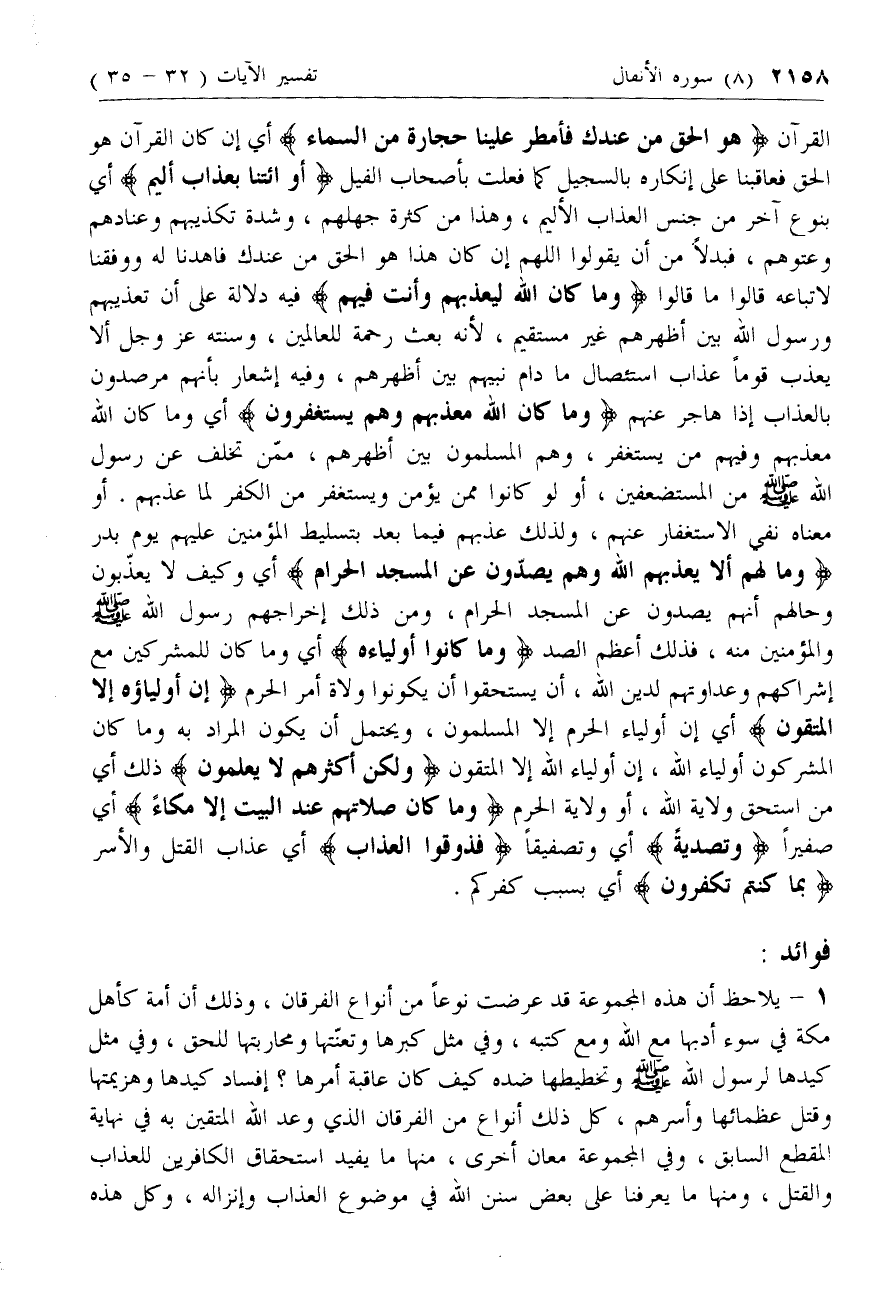 ٢١٥٨ (٨) سورة الأنفال تفسير الآيات ( ٣٢ – ٣٥ )
القرآن ﴿ هو الحق من عندك فأمطر علينا حجارة من السماء ﴾ أي إن كان القرآن هو
الحق فعاقبنا على إنكاره بالسجيل كما فعلت بأصحاب الفيل ﴿ أو ائتنا بعذاب أليم ﴾ أي
بنوع آخر من جنس العذاب الأليم ، وهذا من كثرة جهلهم ، وشدة تكذيبهم وعنادهم
وعتوهم ، فبدلاً من أن يقولوا اللهم إن كان هذا هو الحق من عندك فاهدنا له ووفقنا
لاتباعه قالوا ما قالوا ﴿ وما كان الله ليعذبهم وأنت فيهم ﴾ فيه دلالة على أن تعذيبهم
ورسول الله بين أظهرهم غير مستقيم ، لأنه بعث رحمة للعالمين ، وسنته عز وجل ألا
يعذب قوماً عذاب استئصال ما دام نبيهم بين أظهرهم ، وفيه إشعار بأنهم مرصدون
بالعذاب إذا هاجر عنهم ﴿ وما كان الله معذبهم وهم يستغفرون ﴾ أي وما كان الله
معذبهم وفيهم من يستغفر ، وهم المسلمون بين أظهرهم ، ممّن تخلف عن رسول
الله ﷺ من المستضعفين ، أو لو كانوا ممن يؤمن ويستغفر من الكفر لما عذبهم . أو
معناه نفي الاستغفار عنهم ، ولذلك عذبهم فيما بعد بتسليط المؤمنين عليهم يوم بدر
﴿ وما لهم ألا يعذبهم الله وهم يصدّون عن المسجد الحرام ﴾ أي وكيف لا يعذّبون
وحالهم أنهم يصدون عن المسجد الحرام ، ومن ذلك إخراجهم رسول الله ﷺ
والمؤمنين منه ، فذلك أعظم الصد ﴿ وما كانوا أولياءه ﴾ أي وما كان للمشركين مع
إشراكهم وعداوتهم لدين الله ، أن يستحقوا أن يكونوا ولاة أمر الحرم ﴿ إن أولياؤه إلا
المتقون ﴾ أي إن أولياء الحرم إلا المسلمون ، ويحتمل أن يكون المراد به وما كان
المشركون أولياء الله ، إن أولياء الله إلا المتقون ﴿ ولكن أكثرهم لا يعلمون ﴾ ذلك أي
من استحق ولاية الله ، أو ولاية الحرم ﴿ وما كان صلاتهم عند البيت إلا مكاءً ﴾ أي
صفيراً ﴿ وتصديةً ﴾ أي وتصفيقاً ﴿ فذوقوا العذاب ﴾ أي عذاب القتل والأسر
﴿ بما كنتم تكفرون ﴾ أي بسبب كفركم .
فوائد :
١ – يلاحظ أن هذه المجموعة قد عرضت نوعاً من أنواع الفرقان ، وذلك أن أمة كأهل
مكة في سوء أدبها مع الله ومع كتبه ، وفي مثل كبرها وتعنّتها ومحاربتها للحق ، وفي مثل
كيدها لرسول الله ﷺ وتخطيطها ضده كيف كان عاقبة أمرها ؟ إفساد كيدها وهزيمتها
وقتل عظمائها وأسرهم ، كل ذلك أنواع من الفرقان الذي وعد الله المتقين به في نهاية
المقطع السابق ، وفي المجموعة معان أخرى ، منها ما يفيد استحقاق الكافرين للعذاب
والقتل ، ومنها ما يعرفنا على بعض سنن الله في موضوع العذاب وإنزاله ، وكل هذه